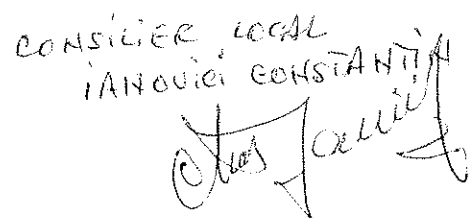 CONSILIER LOCAL
IANOVICI CONSTANTIN